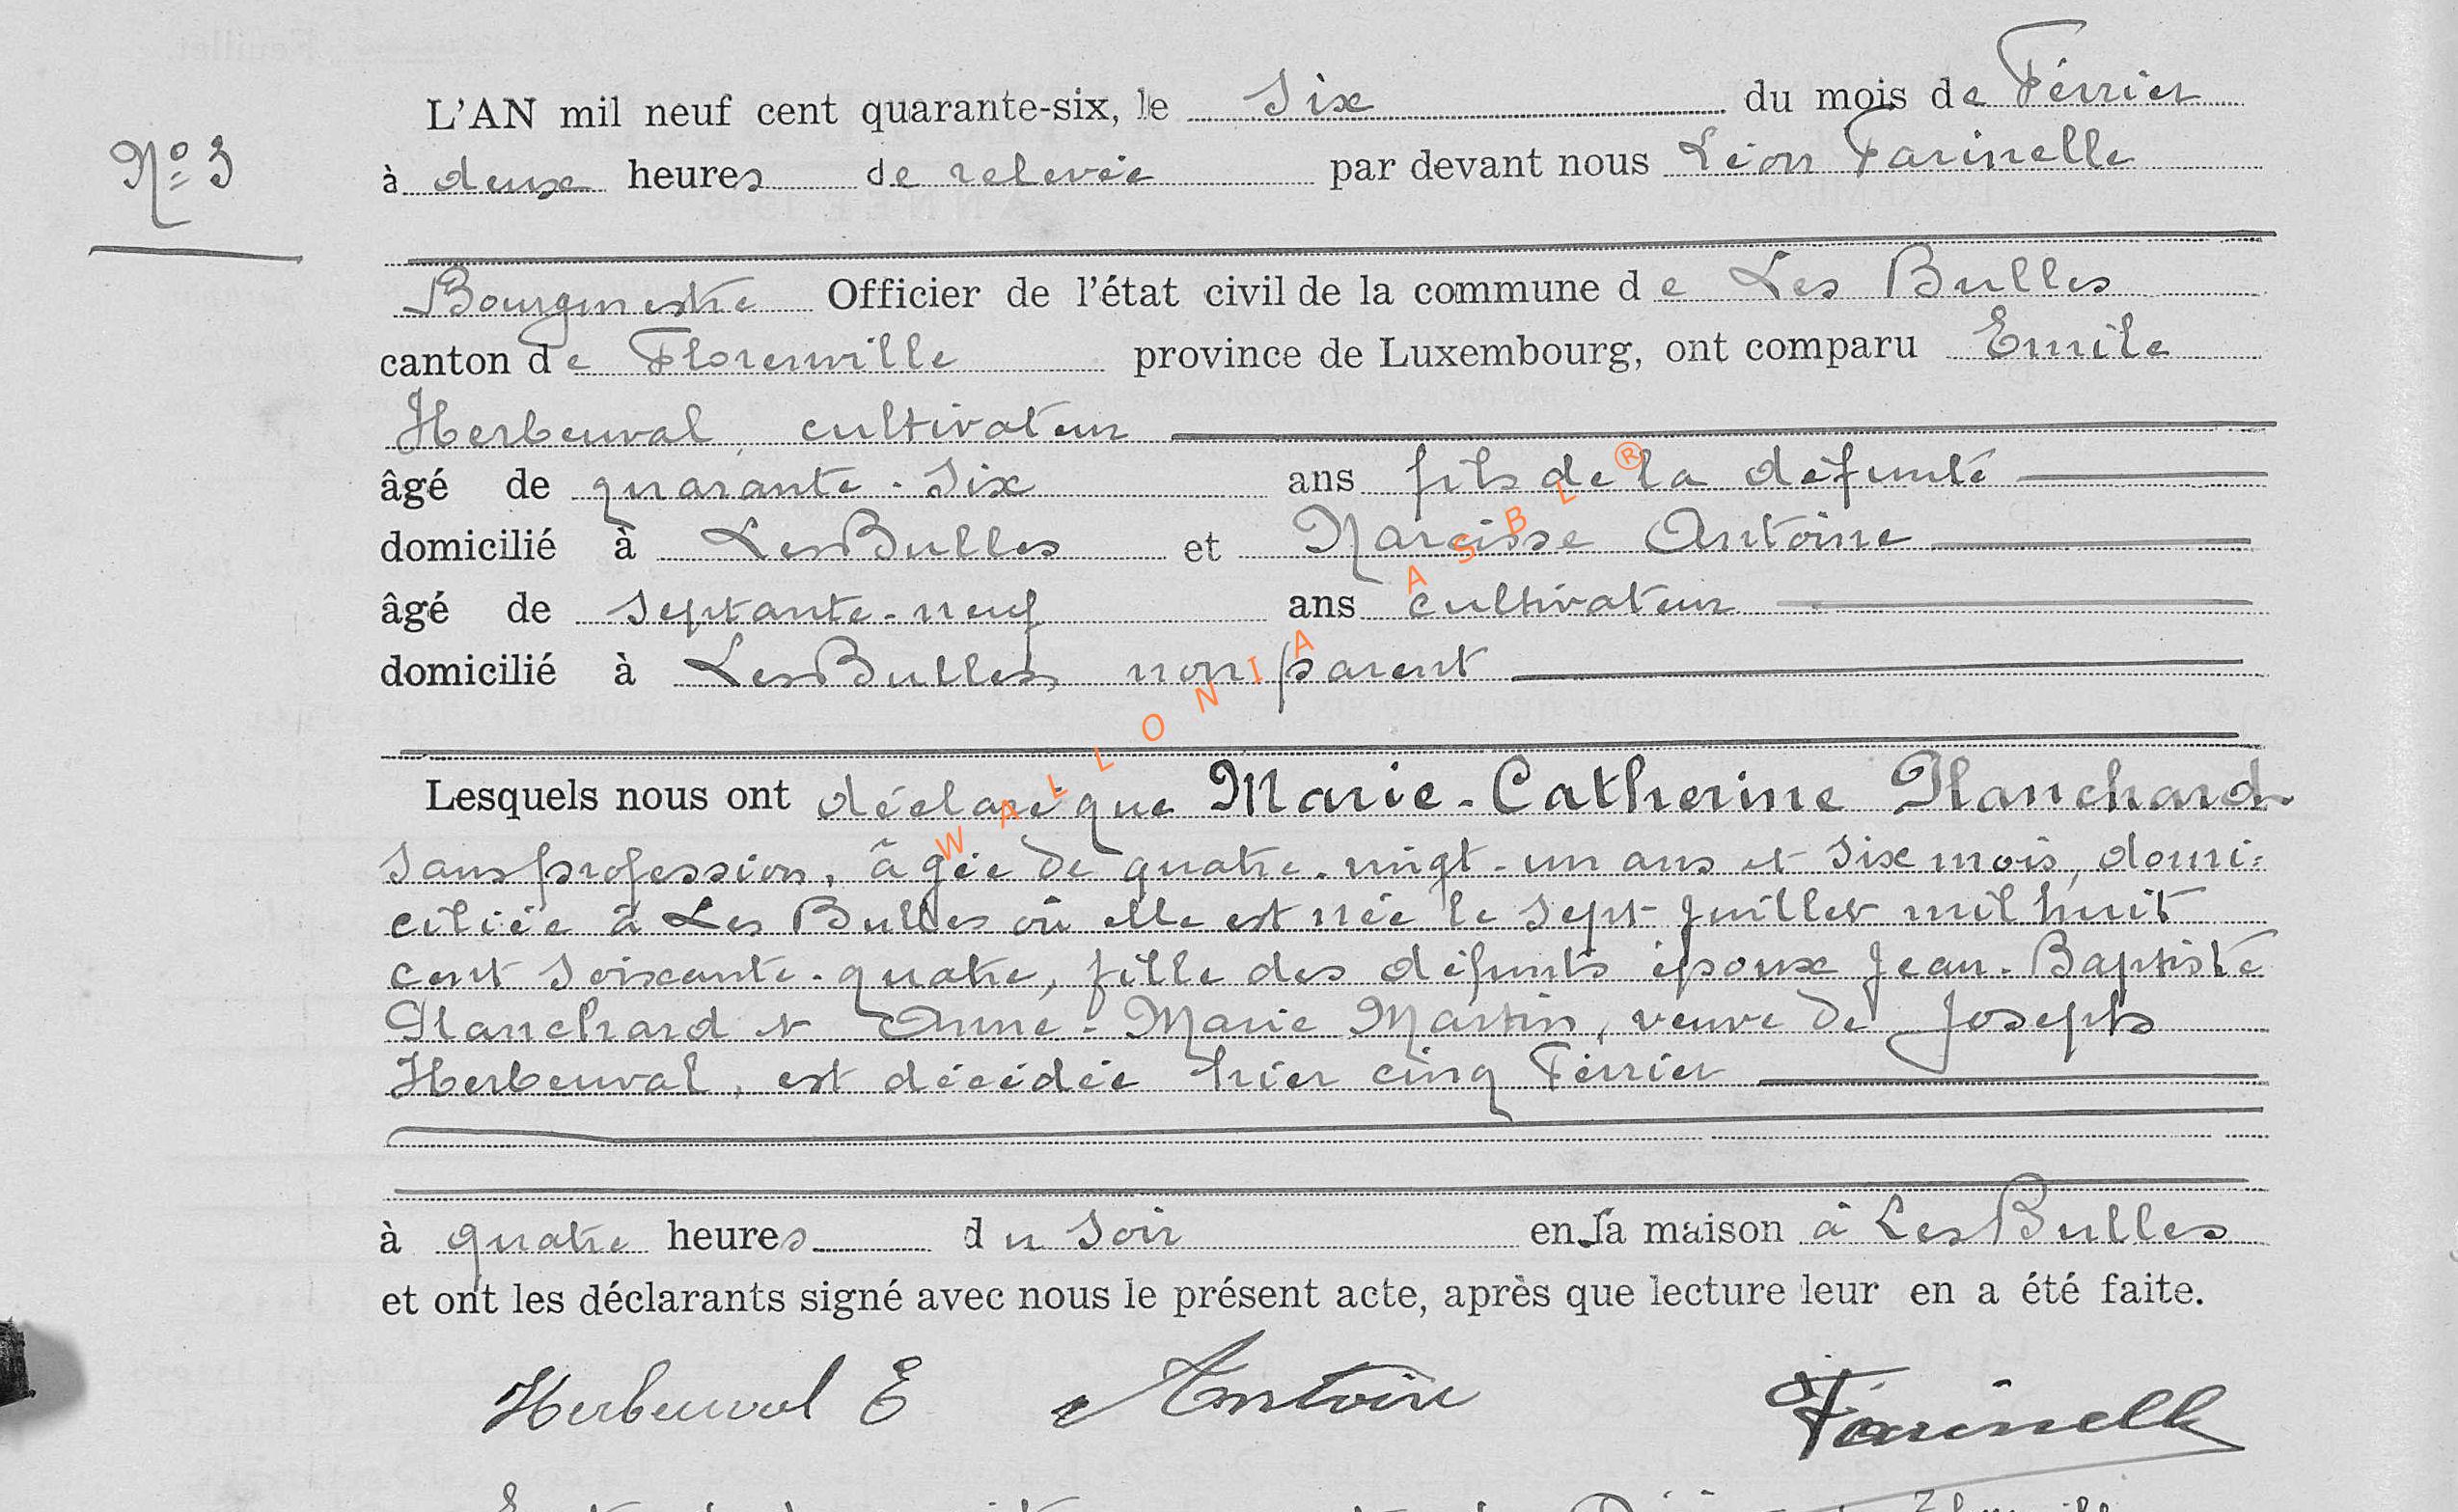 L'AN mil neuf cent quarante-six, le Six du mois de Février
N° 3
à deux heures de relevée par devant nous Léon Farinelle
Bourgmestre Officier de l'état civil de la commune de Les Bulles
canton de Florenville province de Luxembourg, ont comparu Emile
Herbeuval, cultivateur
âgé de quarante-six ans fils de la défunte
domicilié à Les Bulles et Narcisse Antoine
âgé de septante-neuf ans cultivateur
domicilié à Les Bulles, non parent
Lesquels nous ont déclaré que Marie-Catherine Planchard
sans profession, âgée de quatre-vingt-un ans et six mois, domi=
ciliée à Les Bulles où elle est née le sept Juillet mil huit
cent soixante-quatre, fille des défunts époux Jean-Baptiste
Planchard et Anne-Marie Martin, veuve de Joseph
Herbeuval, est décédée hier cinq Février
à quatre heures du soir en la maison à Les Bulles
et ont les déclarants signé avec nous le présent acte, après que lecture leur en a été faite.
Herbeuval E Antoine Farinelle
WALLONIA ASBL ®